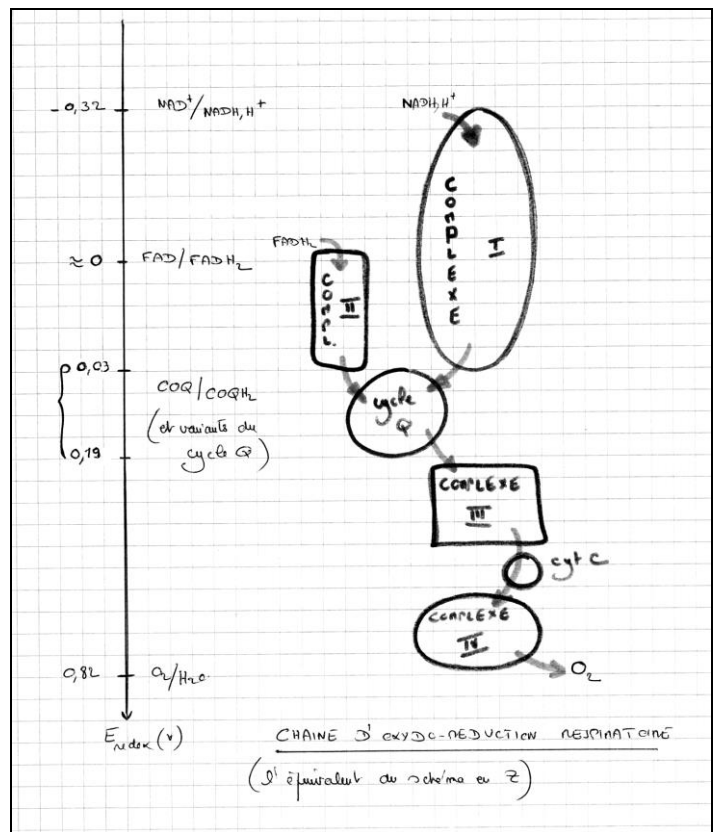 - 0,32
NAD⁺/NADH,H⁺
NADH,H⁺
COMPLEXE
I
≈ 0
FAD/FADH₂
FADH₂
COMPL.
II
0,03
COQ/COQH₂
(et variants du
cycle Q)
0,19
cycle
Q
COMPLEXE
III
cyt C
COMPLEXE
IV
0,82
O₂/H₂O
O₂
E redox (V)
CHAINE D'OXYDO-REDUCTION RESPIRATOIRE
(l'équivalent du schéma en Z)